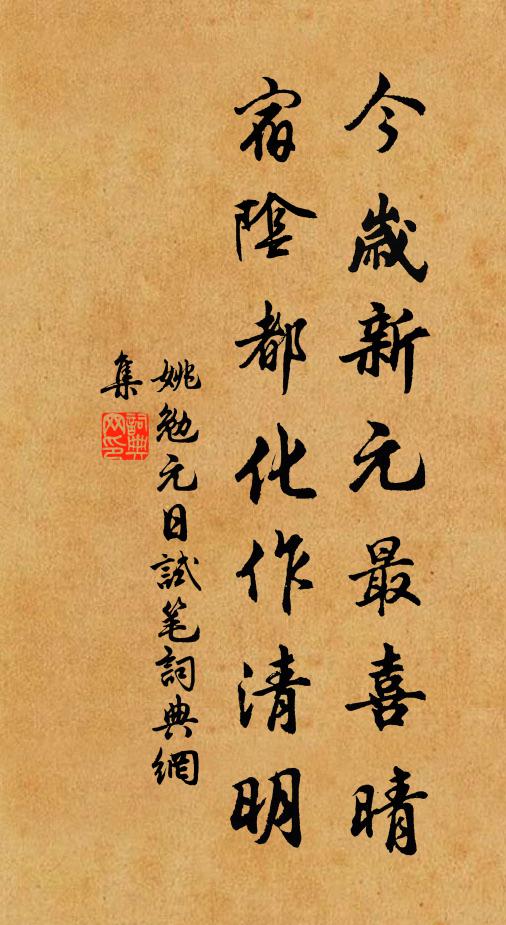 今歲新元最喜晴
宿陰都化作清明
姚勉元日試笔詞典網
集
詞典网印